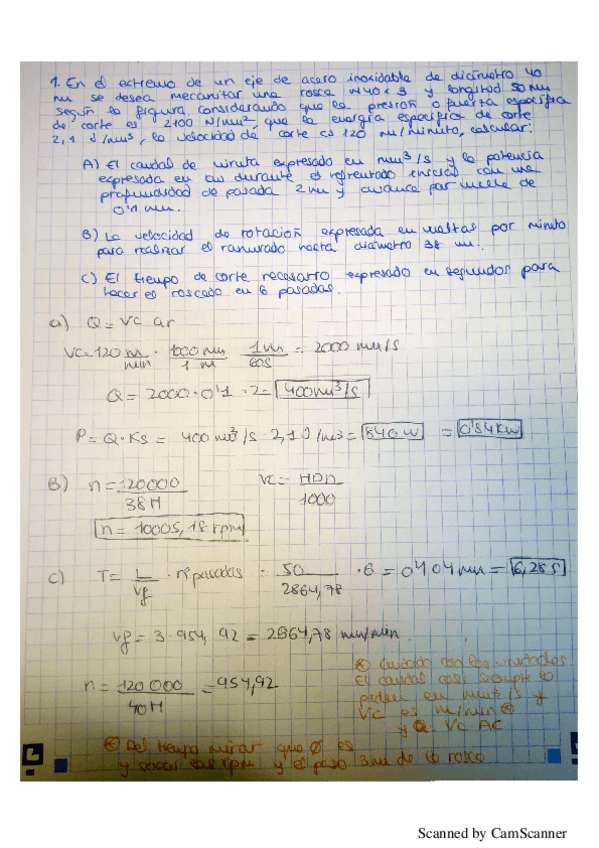 1. En el extremo de un eje de acero inoxidable de diámetro 40
mm se desea mecanizar una rosca M40x3 y longitud 50 mm
según la figura, considerando que la presión o fuerza específica
de corte es 2100 N/mm², que la energía específica de corte
2,1 J/mm³, la velocidad de corte es 120 m/minuto, calcular:
A) El caudal de viruta expresado en mm³/s y la potencia
expresada en kW durante el refrentado inicial con una
profundidad de pasada 2 mm y avance por vuelta de
0'1 mm.
B) La velocidad de rotación expresada en vueltas por minuto
para realizar el ranurado hasta diámetro 38 mm.
C) El tiempo de corte necesario expresado en segundos para
hacer el roscado en 6 pasadas.
a) Q = Vc ar
Vc = 120 m/min · 1000 mm/1 m · 1m/60s = 2000 mm/s
Q = 2000 · 0'1 · 2 = 400 mm³/s
P = Q · Ks = 400 mm³/s · 2,1 J/mm3 = 840 W = 0'84 KW
B) n = 120000/38π Vc = πDn/1000
n = 1005,18 rpm
c) T = L/Vf · nº pasadas = 50/2864,78 · 6 = 0'104 mn = 6,28 s
Vf = 3 · 954,92 = 2864,78 mm/min
n = 120000/40π = 954,92
⊗ Cuidado con las unidades
El caudal casi siempre lo
piden en mm³/s y
Vc es m/min ⊗
y Q = Vc AC
⊗ Del tiempo mirar que Ø es
y sacar las rpm y el paso 3 mm de la rosca
Scanned by CamScanner